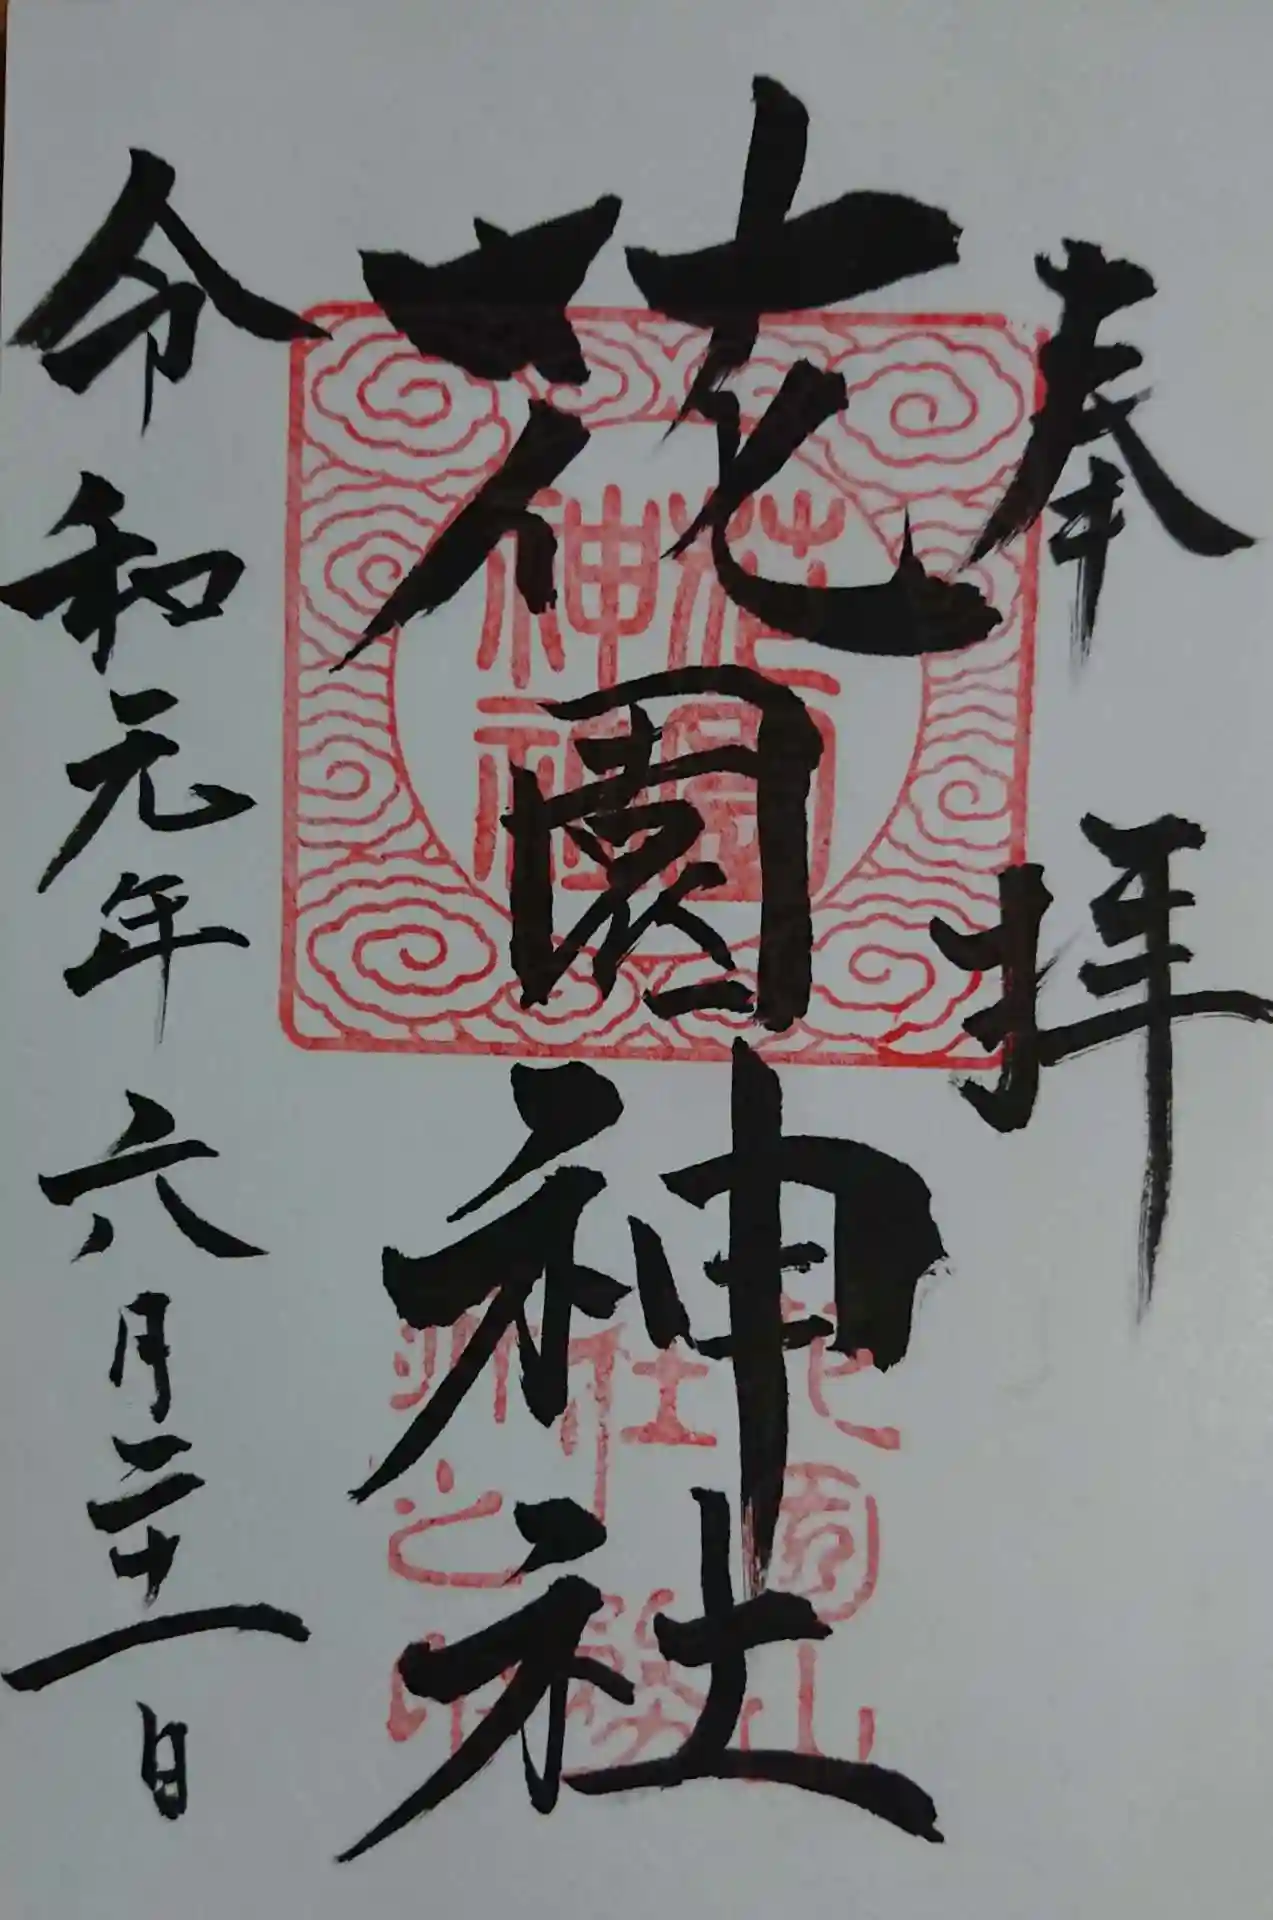 奉拝
花園神社
令和元年六月二十一日
花園神社